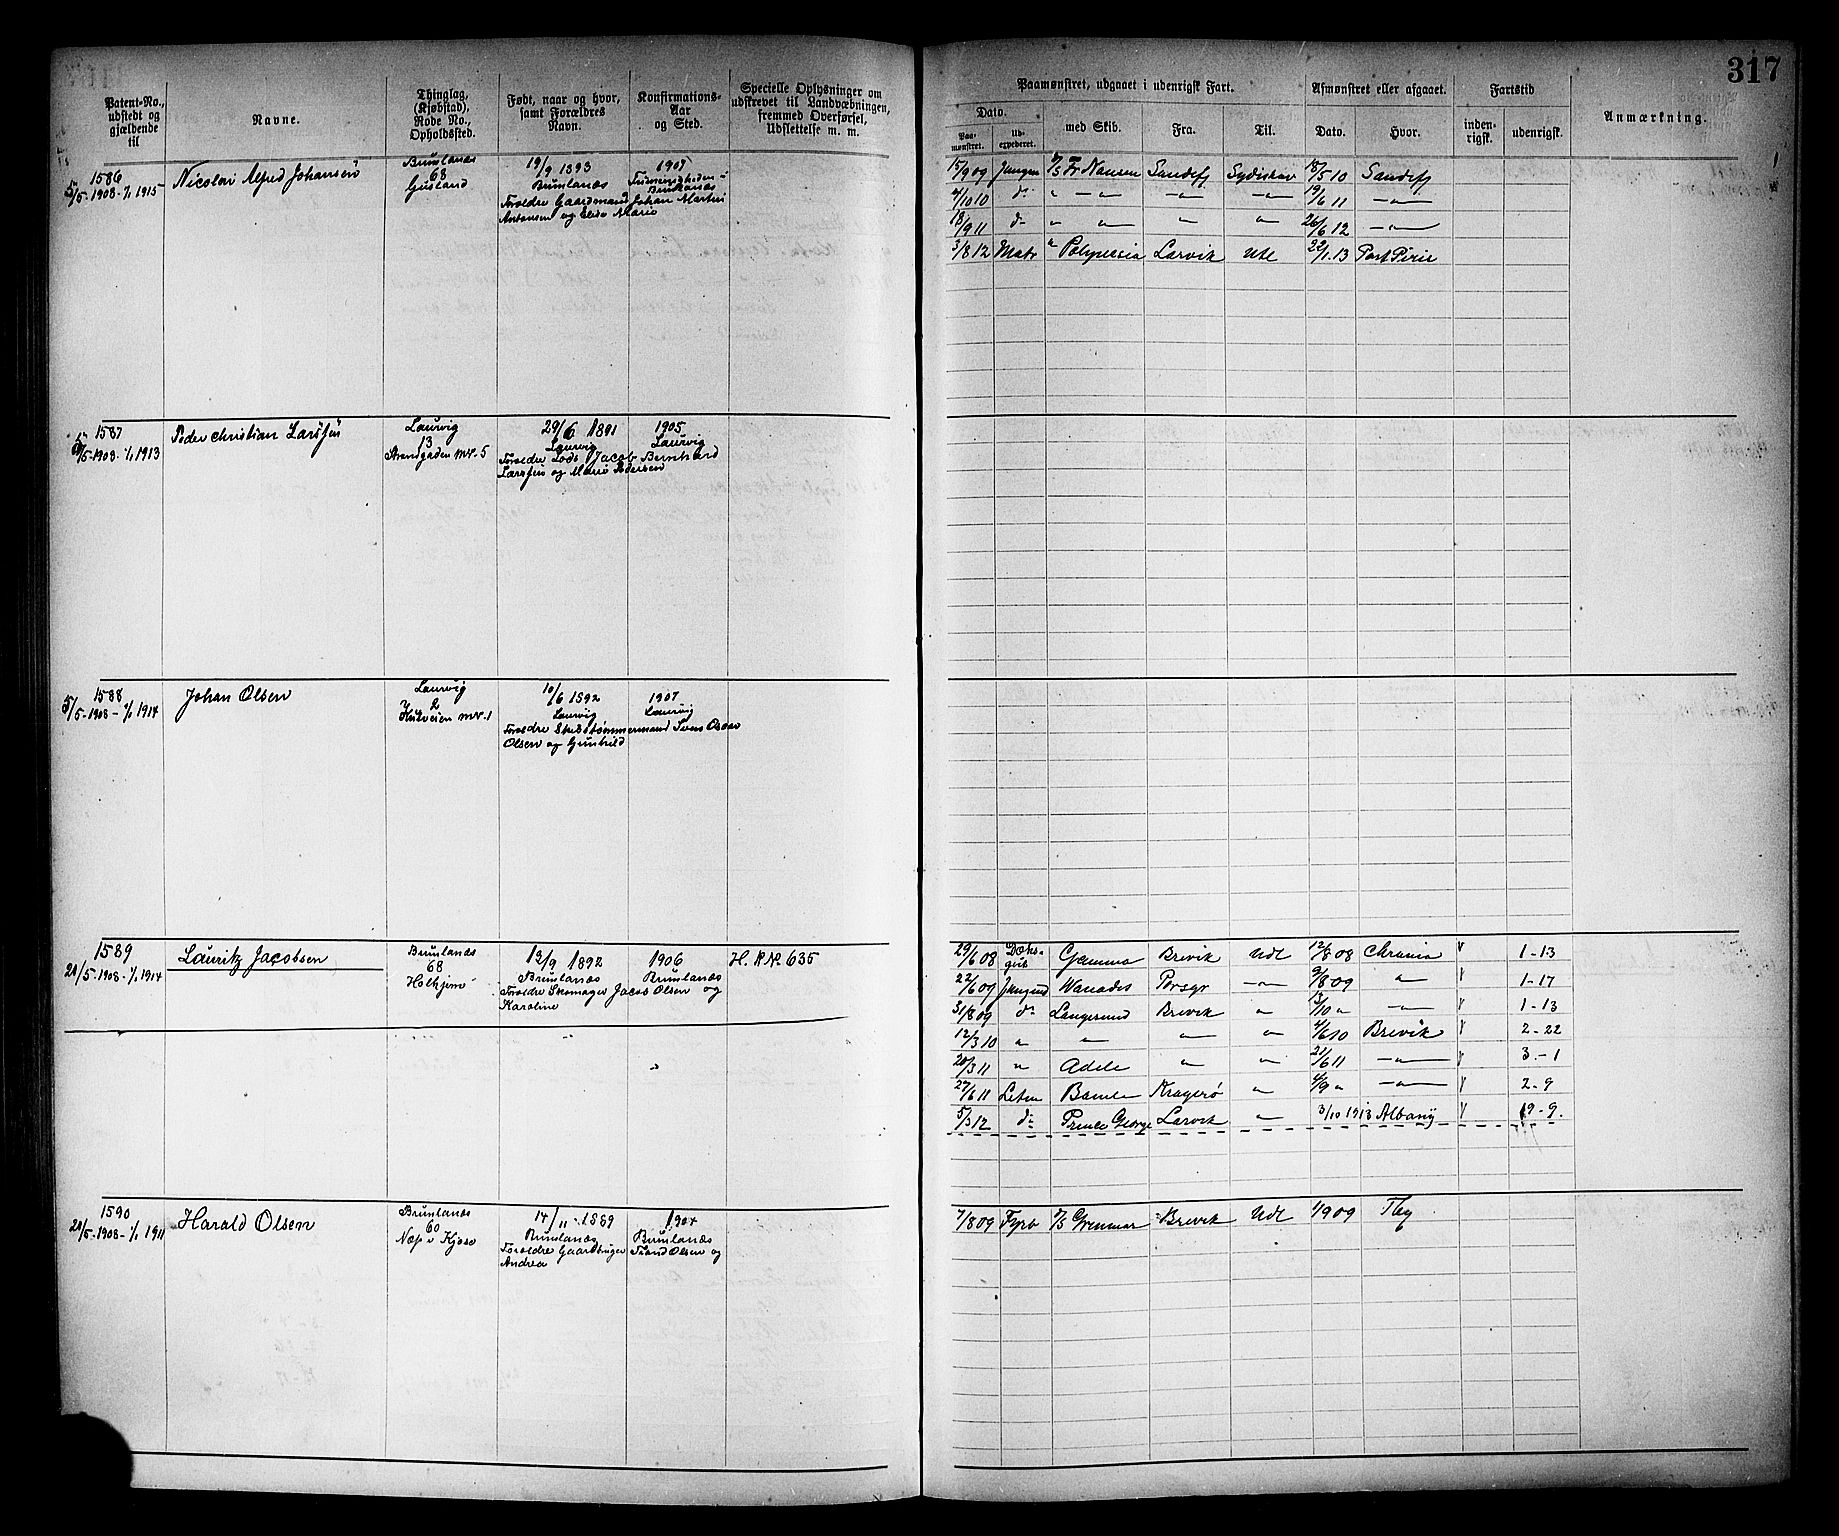 317
Patent-No., udstedt og gjældende til
Navne.
Thinglag, (Kjøbstad), Rode No., Opholdssted.
Født, naar og hvor, samt Forældres Navn.
Konfirmations-Aar og Sted.
Specielle Oplysninger om udskrevet til Landvæbningen, fremmed Overførsel, Udslettelse m. m.
Paamønstret, udgaaet i udenrigsk Fart.
Dato.
Paamønstret.
Udexpederet.
med Skib.
Fra.
Til.
Afmønstret eller afgaaet.
Dato.
Hvor.
Fartstid
indenrigsk.
udenrigsk.
Anmærkning.
1586
5/5-1908-1/1 1915
Nicolai Alfred Johansen
Brunlanæs
68
Gusland
19/9 1893
Brunlanæs
Forældre Gaardmand Johan Martin
Antonsen og Elise Marie
1907
Brunlanæs
15/9 09 Jungm % Fr Nansen Sandefj Sydishav 18/5 10 Sandefj
4/10 10 do " — " — — " — — " — 19/6 11 — " —
18/9 11 do " " " " 26/6 12 — " —
3/8 12 Matr " Polynesia Larvik Ute 22/1 13 Port Pirie
1587
5/5-1908-1/1 1913
Peder Christian Larssen
Laurvig
13
Strandgaden nr. 5
29/6 1891
Laurvig
Forældre Lods Jacob Bernhard
Larssen og Marie Pedersen
1905
Laurvig
1588
5/5-1908-1/1 1914
Johan Olsen
Laurvig
2
nr. 1
10/6 1892
Laurvig
Forældre Skibstømmermand
Olsen og Gunhild
1907
Laurvig
1589
21/5-1908-1/1 1914
Lauritz Jacobsen
Brunlanæs
68
Holkjem
13/9 1892
Brunlanæs
Forældre Skomager Jacob Olsen og
Karoline
1906
Brunlanæs
H. R No. 635
29/6 08 Dæksgut Gamma Brevik Udl 12/8 08 Chrania 1-13
22/6 09 Jungmd Wanadis Porsgr — " — 9/8 09 " 1-17
31/8 09 do Langesund Brevik " 13/10 " — " — 1-13
12/3 10 " " — " — " 4/6 10 Brevik 2-22
20/3 11 " Adele " " 21/6 11 — " — 3-1
27/6 11 Letm Bamle Kragerø " 4/9 " — " — 2-9
5/3 12 do Prince George Larvik " 3/10 1913 Albany 19-9.
1590
21/5-1908-1/1 1911
Harald Olsen
Brunlanæs
60
14/11-1889
Brunlanæs
Forældre Gaardbruger
Andrea
1904
Brunlanæs
Olsen og
7/8 09 Fyrb % Grenmar Brevik Udl 1909